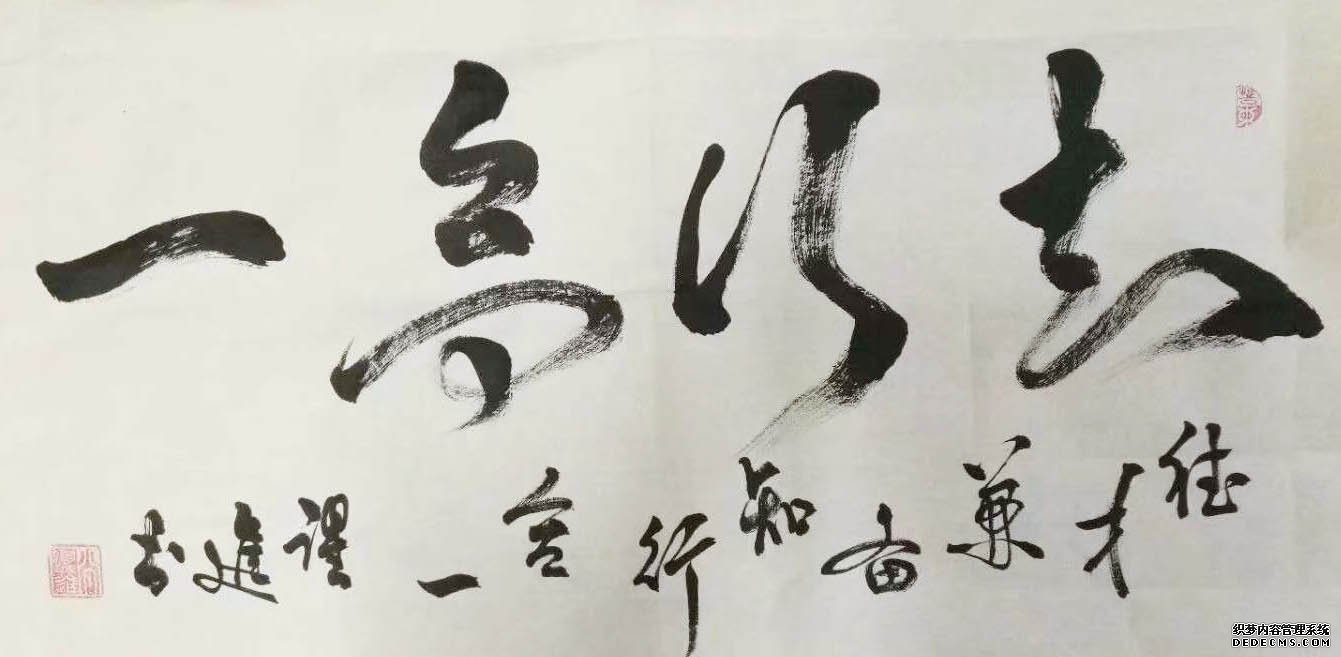 知行合一
德才兼备知行合一
進书
织梦内容管理系统
DEDECMS.COM